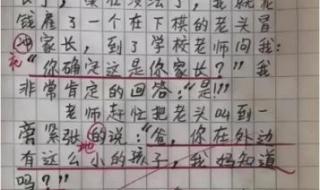 钱雇了一个在下棋的老头冒
油家长，到了学校老师问我：
"你确定这是你家长？"我
非常肯定的回答："是!!!"
老师赶忙把老头叫到一
旁紧张的说："爸，你在外边
有这么小的孩子，我妈知道
吗？"
地